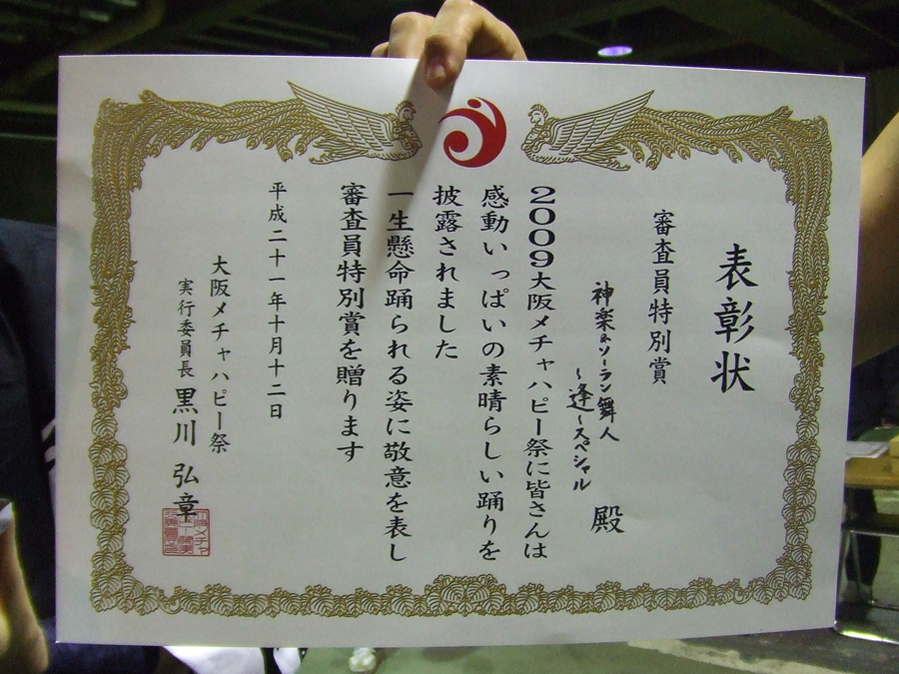 表彰状
審査員特別賞
神楽&ソーラン舞人
～逢～スペシャル
殿
2009大阪メチャハピー祭に皆さんは
感動いっぱいの素晴らしい踊りを
披露されました
一生懸命踊られる姿に敬意を表し
審査員特別賞を贈ります
平成二十一年十月十二日
大阪メチャハピー祭
実行委員長 黒川 弘章